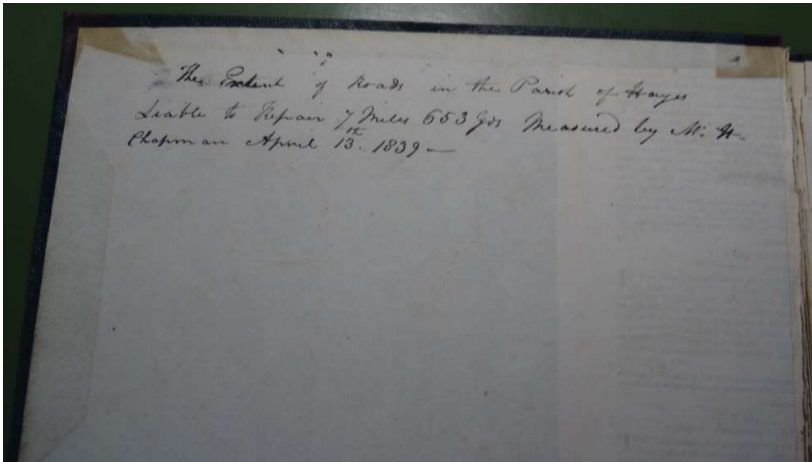 The Extent of Roads in the Parish of Hayes
Liable to Repair 7 Miles 653 Yds Measured by Mr. H.
Chapman April 13th. 1839 —